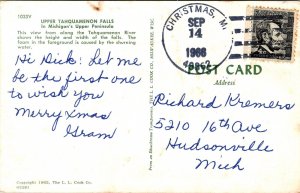 1035Y
UPPER TAHQUAMENON FALLS
in Michigan's Upper Peninsula
This view from along the Tahquamenon River
shows the height and width of the falls. The
foam in the foreground is caused by the churning
water.
Hi Dick: Let me
be the first one
to wish you
Merry Xmas
Gram
CHRISTMAS, MI
SEP
14
1966
POST CARD
Address
Richard Kremers
5210 16th Ave
Hudsonville
Mich